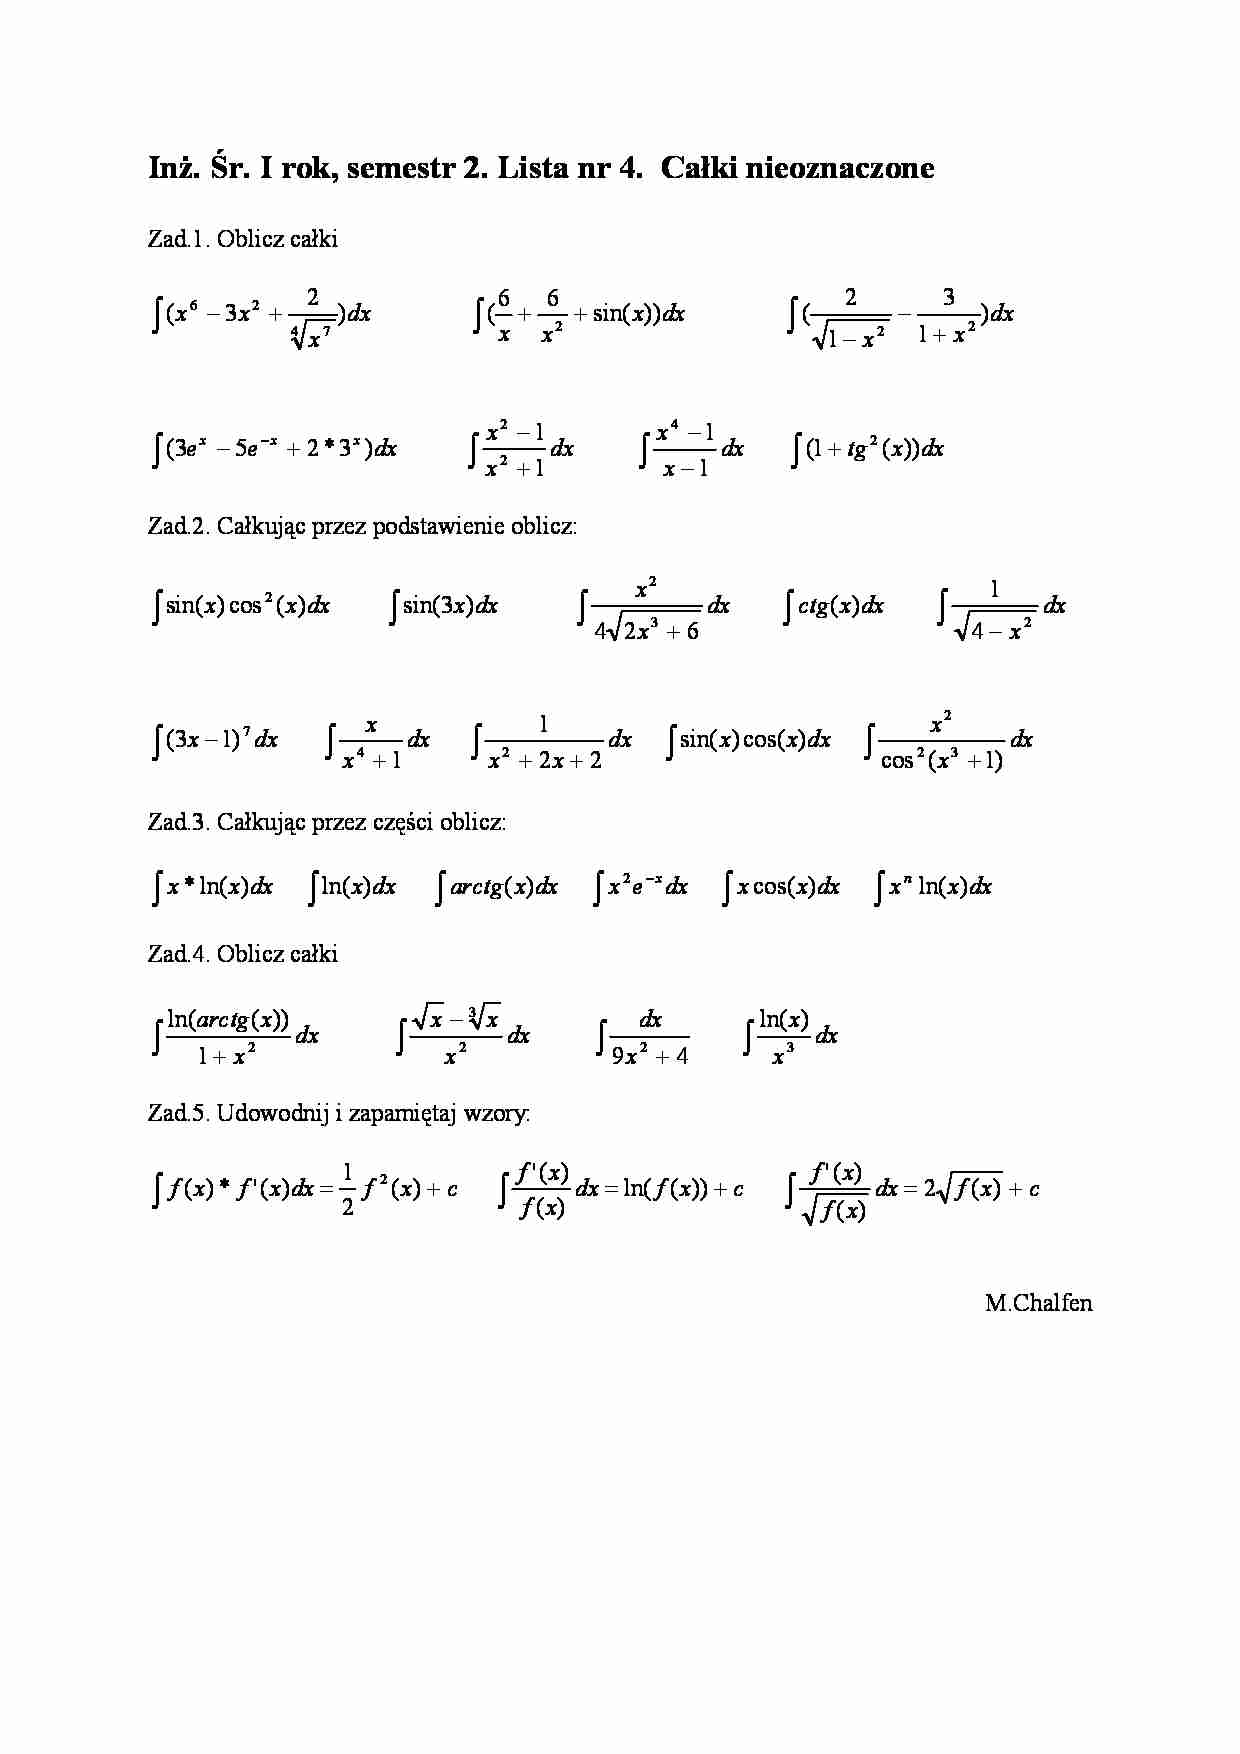 Inż. Śr. I rok, semestr 2. Lista nr 4. Całki nieoznaczone
Zad.1. Oblicz całki
∫(x⁶ − 3x² + 2/∜x⁷)dx ∫(6/x + 6/x² + sin(x))dx ∫(2/√(1−x²) − 3/(1+x²))dx
∫(3eˣ − 5e⁻ˣ + 2*3ˣ)dx ∫(x²−1)/(x²+1) dx ∫(x⁴−1)/(x−1) dx ∫(1+tg²(x))dx
Zad.2. Całkując przez podstawienie oblicz:
∫sin(x)cos²(x)dx ∫sin(3x)dx ∫x²/(4√(2x³+6)) dx ∫ctg(x)dx ∫1/√(4−x²) dx
∫(3x−1)⁷dx ∫x/(x⁴+1) dx ∫1/(x²+2x+2) dx ∫sin(x)cos(x)dx ∫x²/cos²(x³+1) dx
Zad.3. Całkując przez części oblicz:
∫x*ln(x)dx ∫ln(x)dx ∫arctg(x)dx ∫x²e⁻ˣdx ∫xcos(x)dx ∫xⁿ ln(x)dx
Zad.4. Oblicz całki
∫ln(arctg(x))/(1+x²) dx ∫(√x − ∛x)/x² dx ∫dx/(9x²+4) ∫ln(x)/x³ dx
Zad.5. Udowodnij i zapamiętaj wzory:
∫f(x)*f'(x)dx = 1/2 f²(x) + c ∫f'(x)/f(x) dx = ln(f(x)) + c ∫f'(x)/√f(x) dx = 2√f(x) + c
M.Chalfen